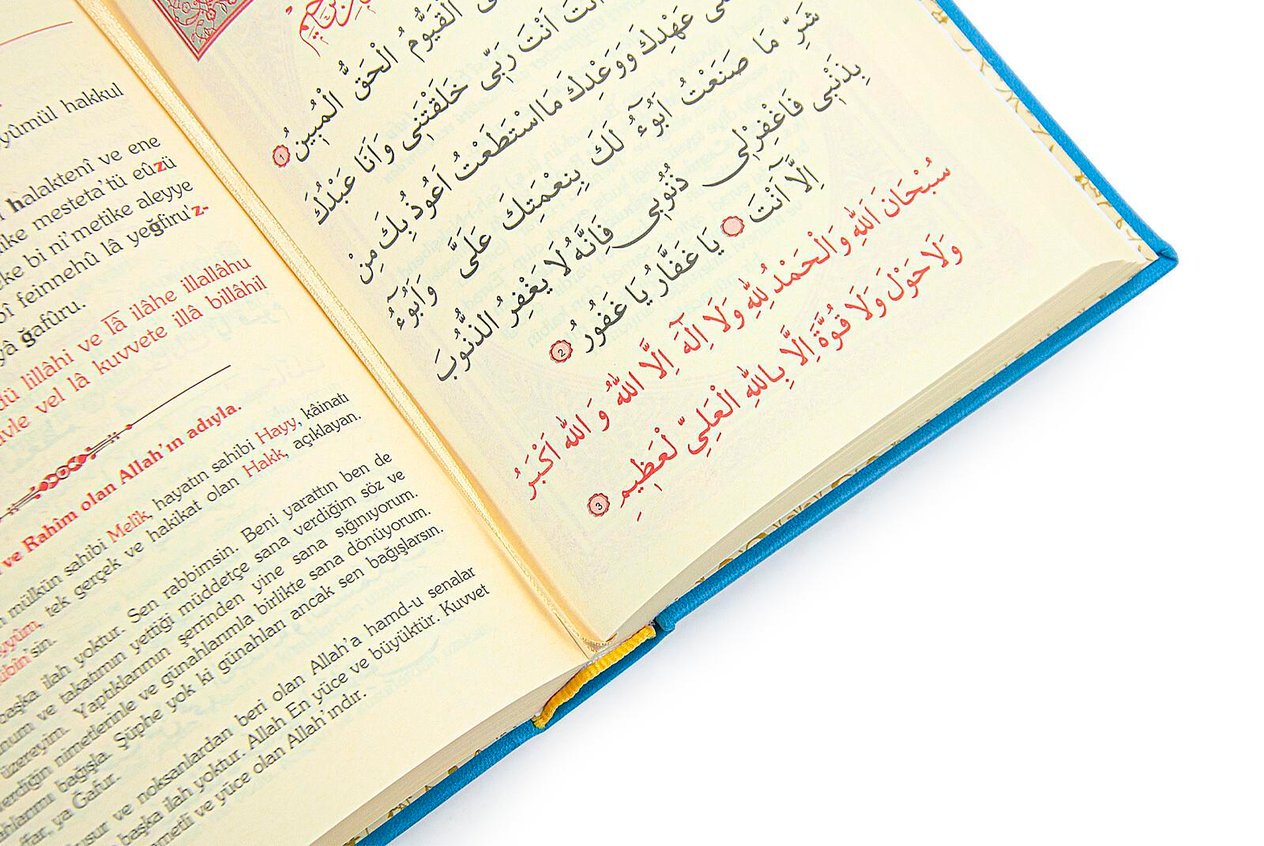 yûmül hakkul
halaktenî ve ene
ike mesteta'tü eûzü
eke bi ni'metike aleyye
bî feinnehû lâ yeğfiru'z-
yâ ğafûru.
dü lillâhi ve lâ ilâhe illallâhu
avle vel lâ kuvvete illâ billâhil
ve Rahim olan Allah'ın adıyla.
mülkün sahibi Melik, hayatın sahibi Hayy, kâinatı
ayyüm, tek gerçek ve hakikat olan Hakk, açıklayan.
übin'sin.
başka ilah yoktur. Sen rabbimsin. Beni yarattın ben de
num ve takatımın yettiği müddetçe sana verdiğim söz ve
üzereyim. Yaptıklarımın şerrinden yine sana sığınıyorum.
verdiğin nimetlerinle ve günahlarımla birlikte sana dönüyorum.
ahlarımı bağışla. Şüphe yok ki günahları ancak sen bağışlarsın.
ffar, ya Gafur.
usur ve noksanlardan beri olan Allah'a hamd-u senalar
başka ilah yoktur. Allah En yüce ve büyüktür. Kuvvet
metli ve yüce olan Allah'ındır.
الْقَيُّومُ الْحَقُّ الْمُبِينُ ١
اَنْتَ اَنْتَ رَبِّى خَلَقْتَنِى وَاَنَا عَبْدُكَ
عَهْدِكَ وَوَعْدِكَ مَا اسْتَطَعْتُ اَعُوذُ بِكَ مِنْ
شَرِّ مَا صَنَعْتُ اَبُوٓءُ لَكَ بِنِعْمَتِكَ عَلَىَّ وَاَبُوٓءُ
بِذَنْبِى فَاغْفِرْلِى ذُنُوبِى فَاِنَّهُ لَا يَغْفِرُ الذُّنُوبَ
اِلَّا اَنْتَ يَا غَفَّارُ يَا غَفُورُ ٢
سُبْحَانَ اللّٰهِ وَالْحَمْدُ لِلّٰهِ وَلَا اِلٰهَ اِلَّا اللّٰهُ وَ اللّٰهُ اَكْبَرُ
وَلَا حَوْلَ وَلَا قُوَّةَ اِلَّا بِاللّٰهِ الْعَلِىِّ لْعَظِيمِ ٣